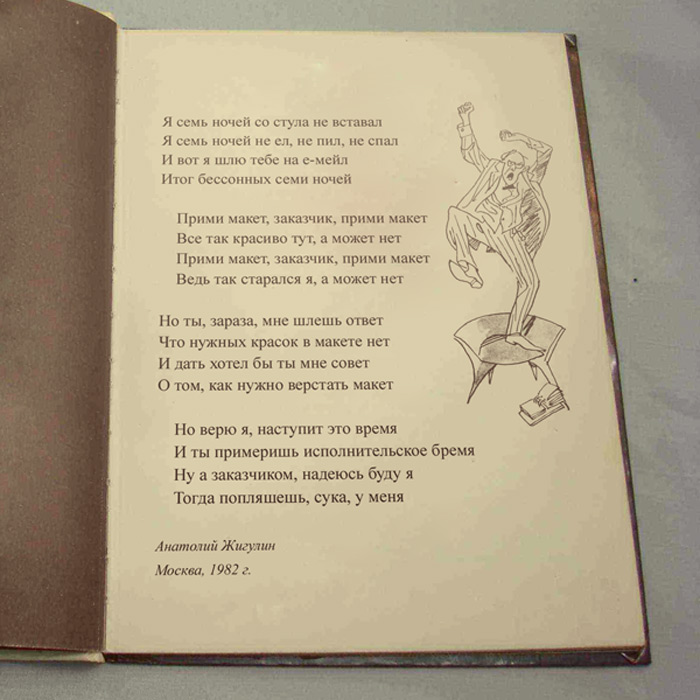 Я семь ночей со стула не вставал
Я семь ночей не ел, не пил, не спал
И вот я шлю тебе на е-мейл
Итог бессонных семи ночей
Прими макет, заказчик, прими макет
Все так красиво тут, а может нет
Прими макет, заказчик, прими макет
Ведь так старался я, а может нет
Но ты, зараза, мне шлешь ответ
Что нужных красок в макете нет
И дать хотел бы ты мне совет
О том, как нужно верстать макет
Но верю я, наступит это время
И ты примеришь исполнительское бремя
Ну а заказчиком, надеюсь буду я
Тогда попляшешь, сука, у меня
Анатолий Жигулин
Москва, 1982 г.